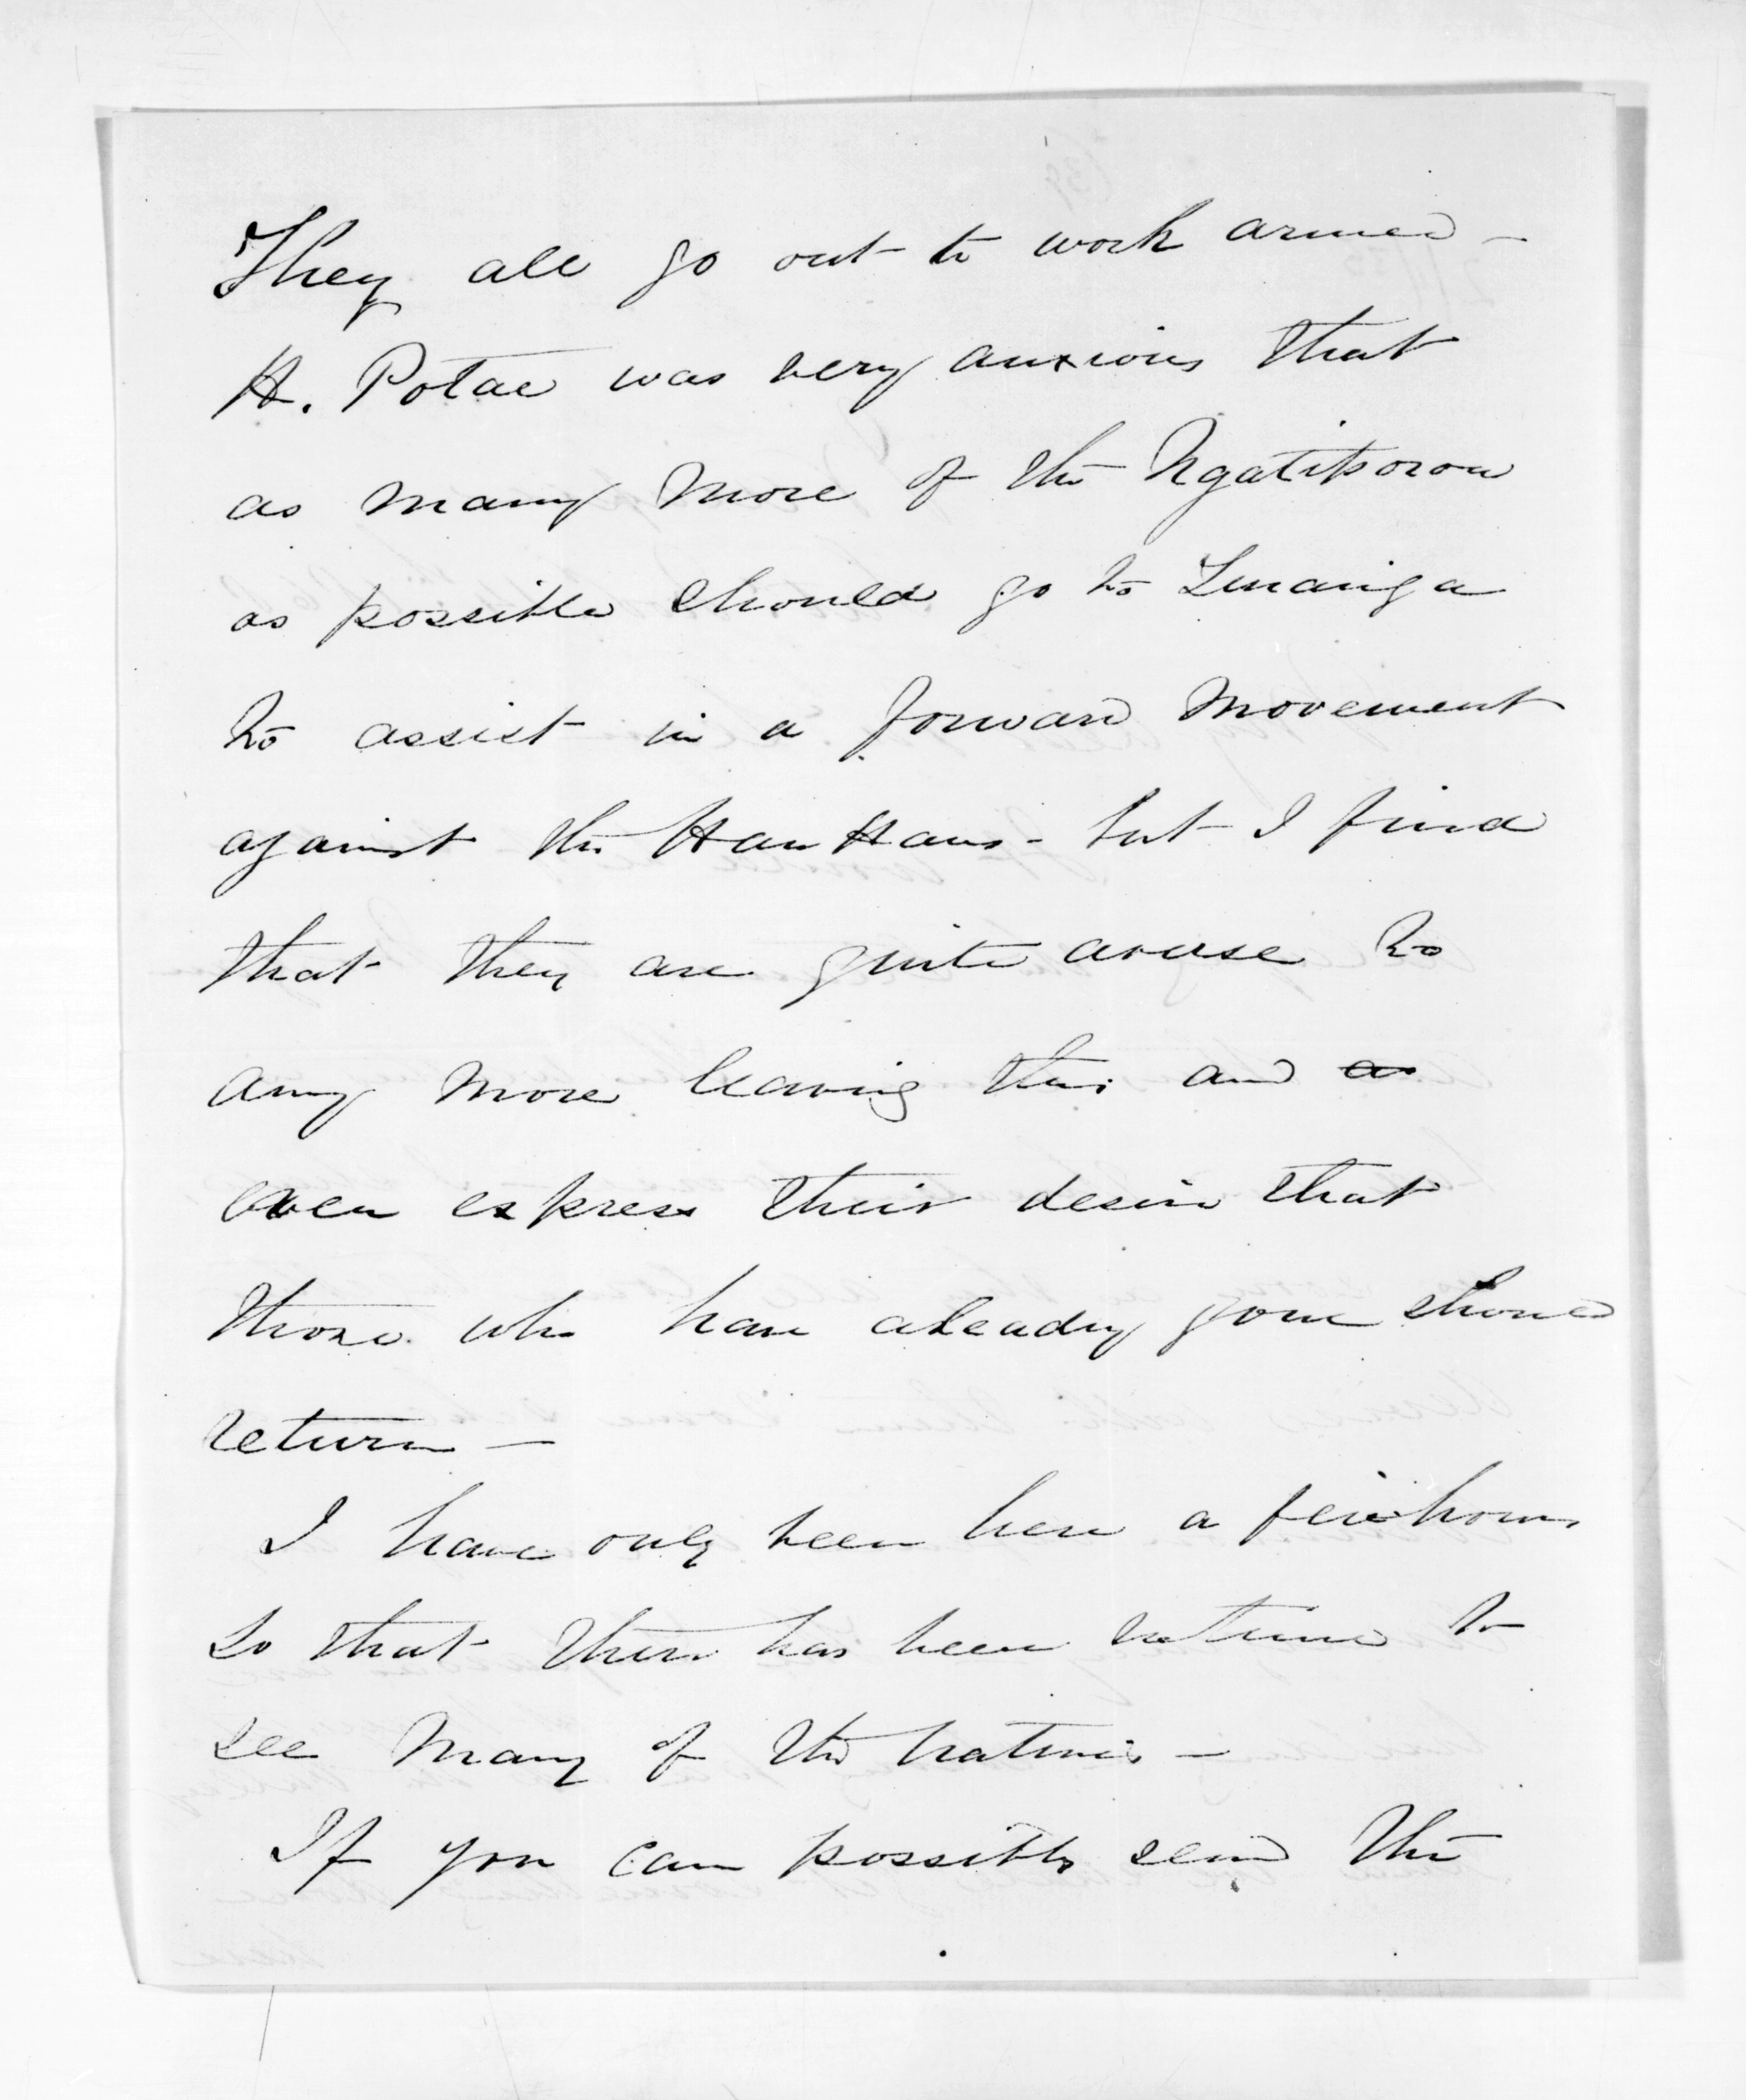 They all go out to work armed –
H. Potae was very anxious that
as many more of the Ngatiporou
as possible should go to Turanga
to assist in a forward movement
against the Hau Haus - but I find
that they are quite averse to
any more leaving this and as
even express their desire that
those who have already gone should
return —
I have only been here a few hours
so that there has been no time to
see many of the natives —
If you can possibly send the